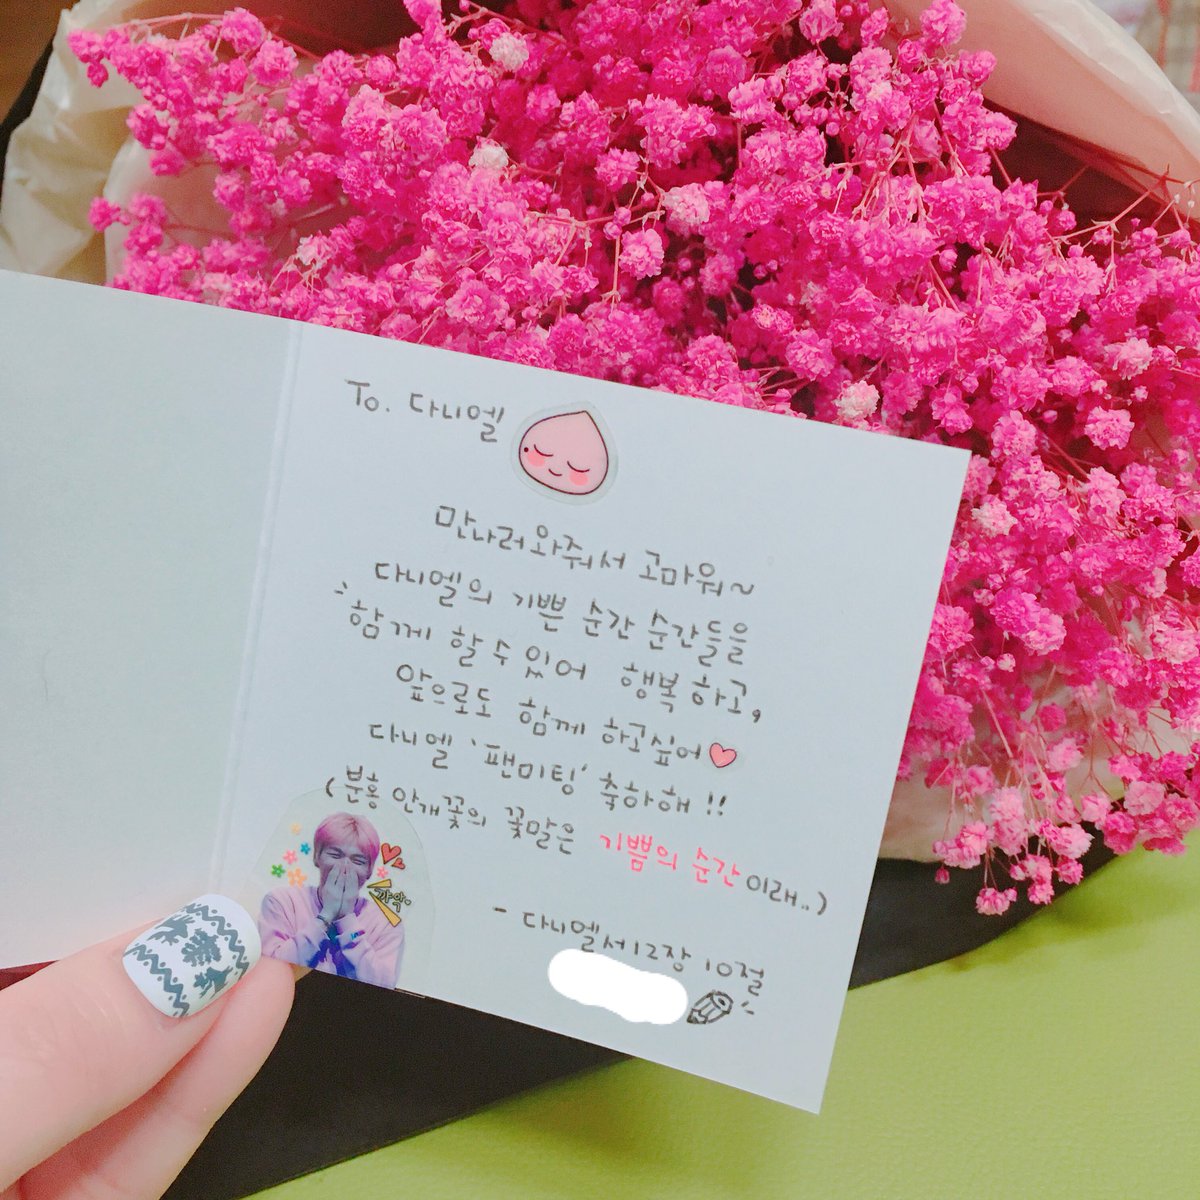 To. 다니엘
만나러와줘서 고마워~
다니엘의 기쁜 순간 순간들을
함께 할 수 있어 행복하고,
앞으로도 함께 하고싶어
다니엘 '팬미팅' 축하해!!
(분홍 안개꽃의 꽃말은 기쁨의 순간이래..)
까악
- 다니엘서12장 10절